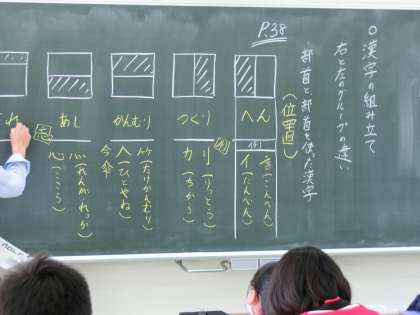 P.38
○漢字の組み立て
右と左のグループの違い
部首と、部首を使った漢字
(位置)
へん
例
イ(にんべん)
つくり
刂(りっとう)
力(ちから)
かんむり
竹(たけかんむり)
𠆢(ひとやね)
今
傘
あし
灬(れんが・れっか)
心(こころ)
れ